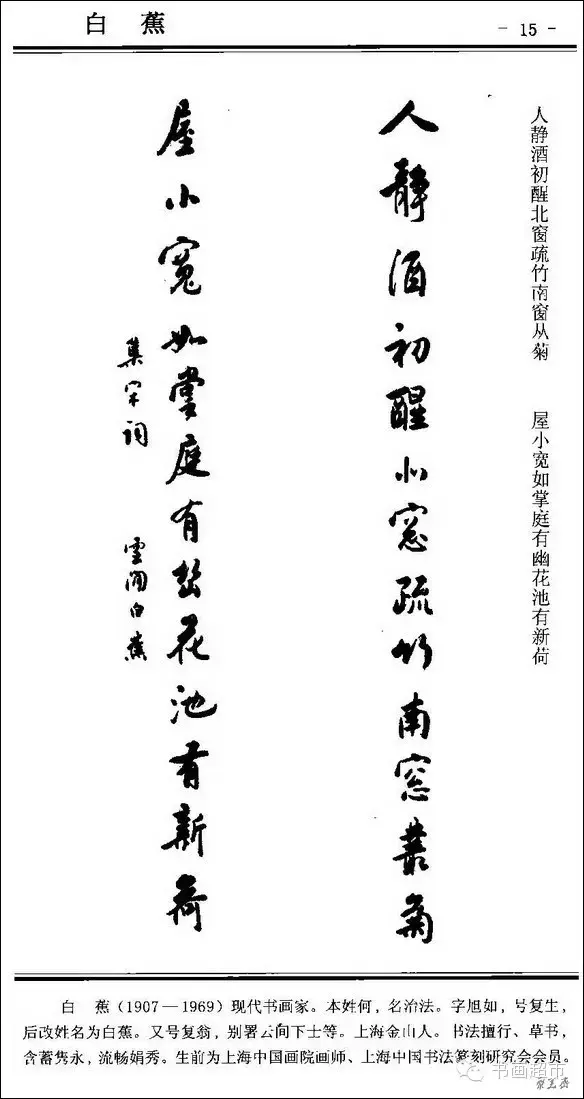 白 蕉
- 15 -
人静酒初醒北窗疏竹南窗从菊 屋小宽如掌庭有幽花池有新荷
人靜酒初醒北窓疏竹南窓叢菊
屋小寬如掌庭有幽花池有新荷
集宋詞 雲間白蕉
白 蕉(1907—1969)现代书画家。本姓何,名治法。字旭如,号复生,
后改姓名为白蕉。又号复翁,别署云间下士等。上海金山人。书法擅行、草书,
含蓄隽永,流畅娟秀。生前为上海中国画院画师、上海中国书法篆刻研究会会员。
书画超市